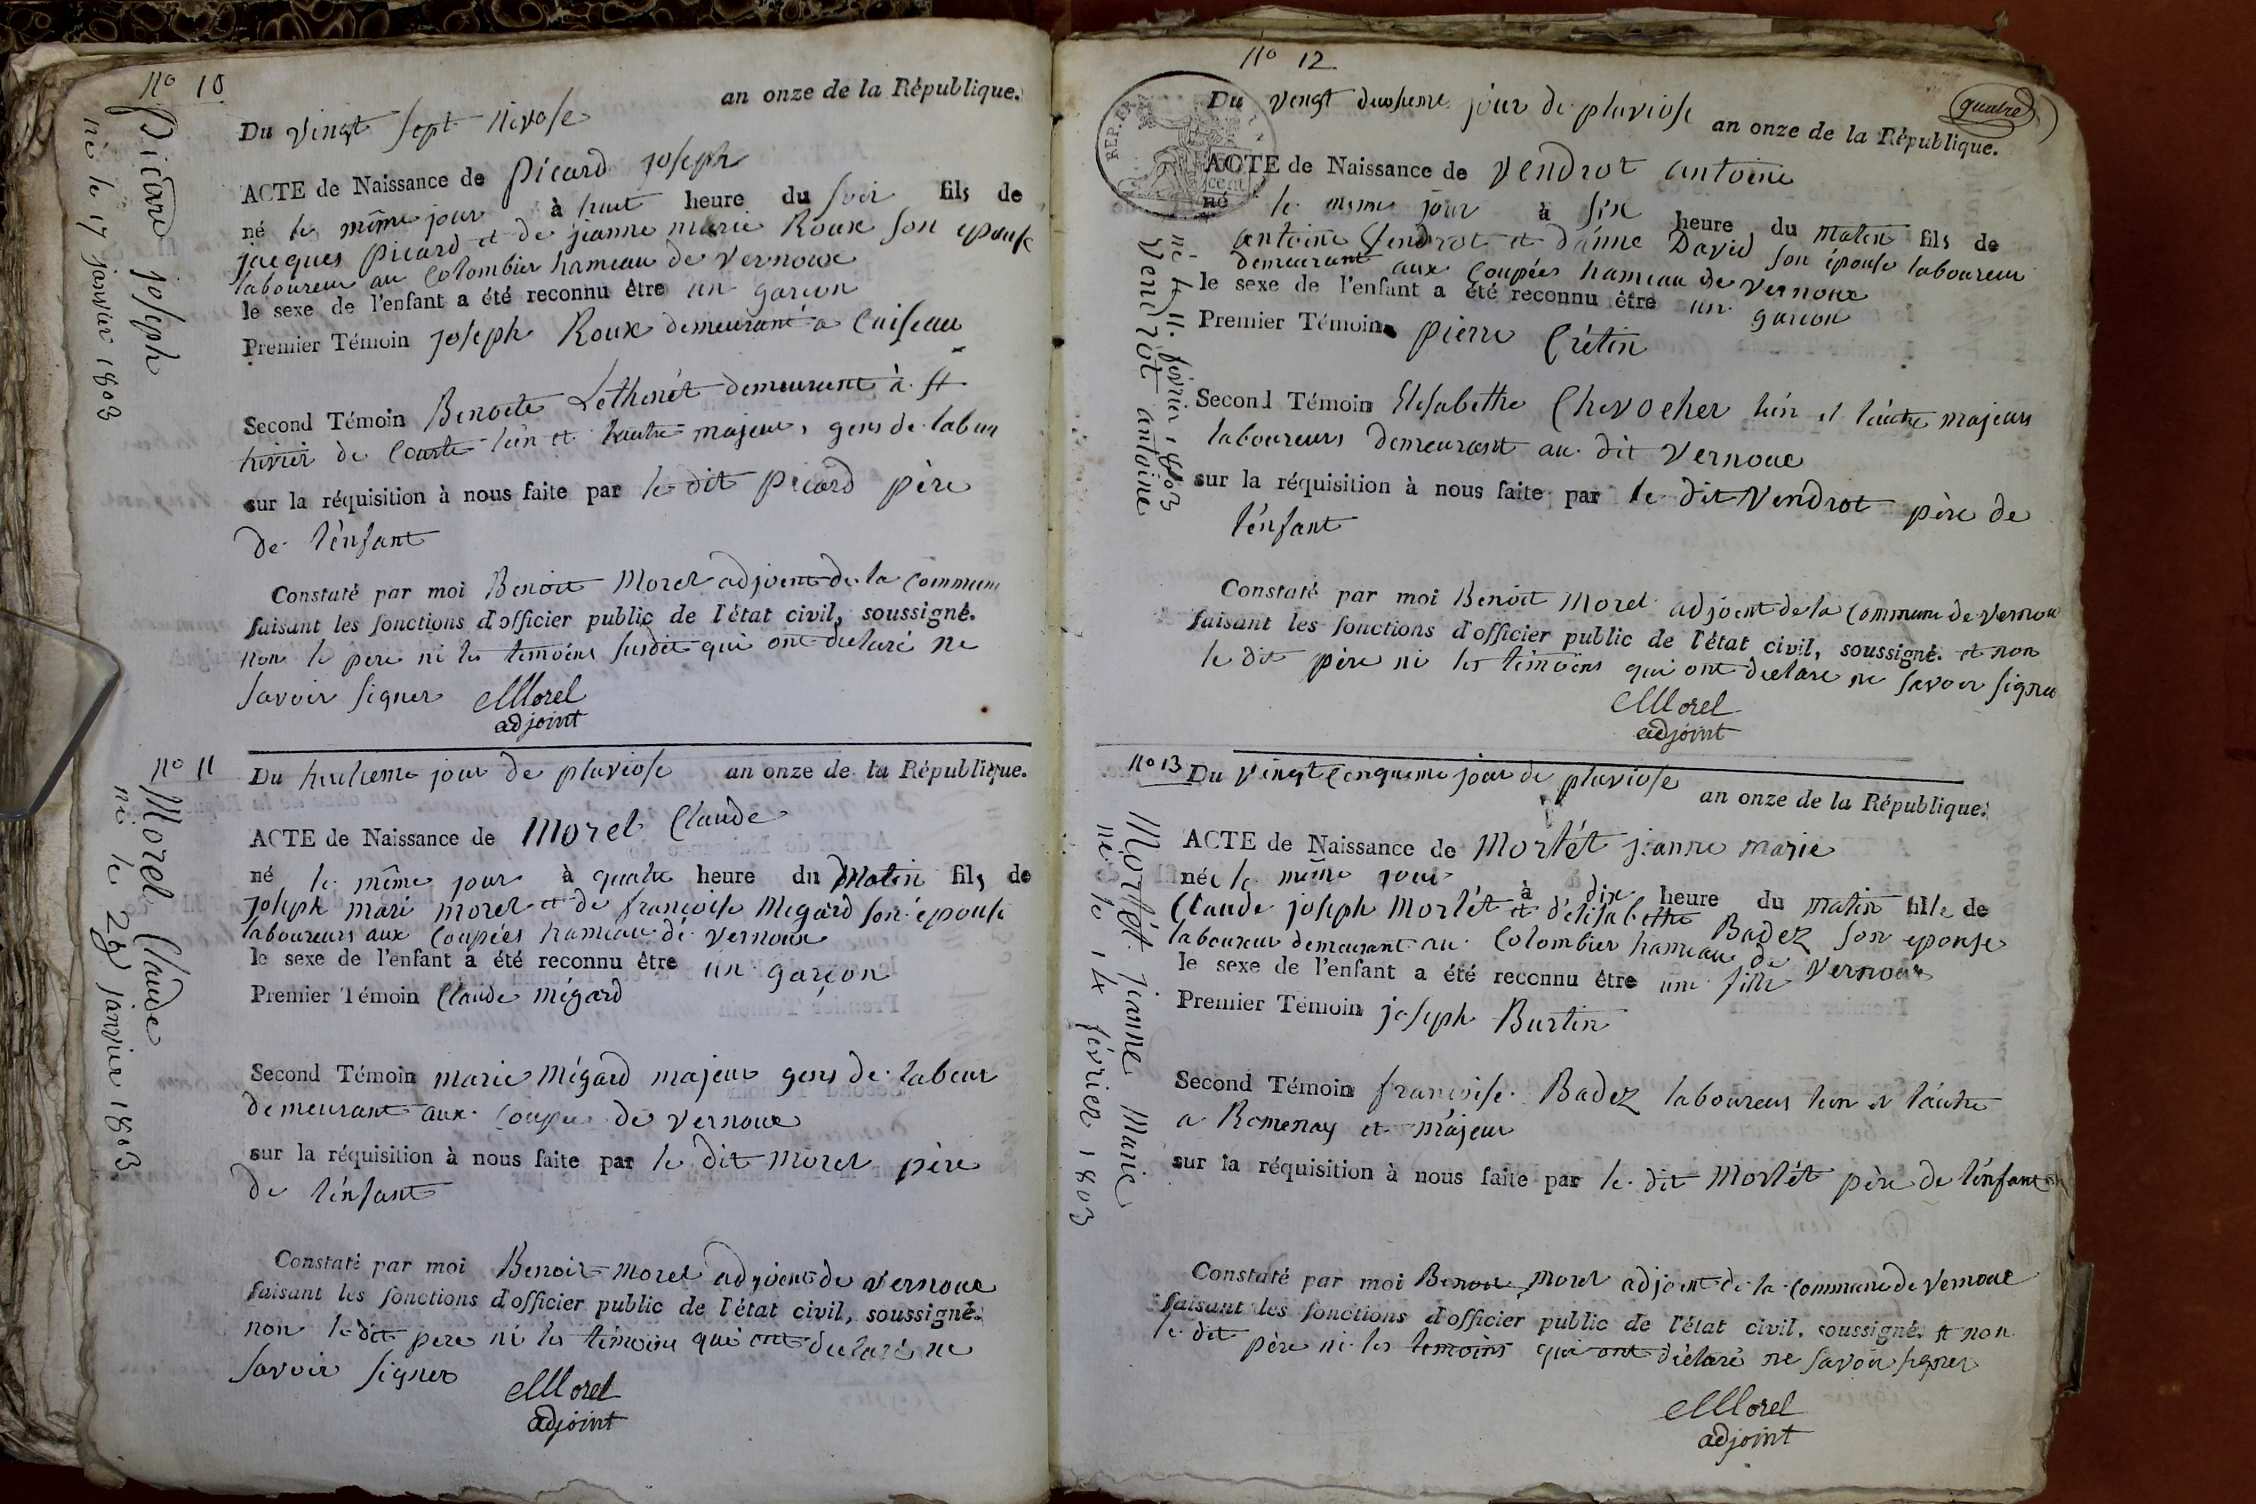 No 10
Picard joseph
né le 17 janvier 1803
Du vingt sept nivose an onze de la République.
ACTE de Naissance de Picard joseph
né le même jour à huit heure du soir fils de
jacques Picard et de jeanne marie Roux son epouse
laboureur au Colombier hameau de Vernoux
le sexe de l'enfant a été reconnu être un garçon
Premier Témoin joseph Roux demeurant a Cuiseau
Second Témoin Benoite demeurant à st
de l'un et l'autre majeur, gens de labeur
sur la réquisition à nous faite par le dit Picard père
de l'enfant
Constaté par moi Benoit Morel adjoint de la Commune
faisant les fonctions d'officier public de l'état civil, soussigné.
non le pere ni les témoins susdit qui ont declaré ne
savoir signer Morel
adjoint
No 11
Morel Claude
né le 28 janvier 1803
Du huitieme jour de pluviose an onze de la République.
ACTE de Naissance de Morel Claude
né le même jour à quatre heure du Matin fils de
joseph marie morel et de françoise Megard son épouse
laboureurs aux Coupées hameau de vernoux
le sexe de l'enfant a été reconnu être un garçon
Premier Témoin Claude mégard
Second Témoin marie Mégard majeur gens de labeur
demeurant aux Coupées de vernoux
sur la réquisition à nous faite par le dit morel père
de l'enfant
Constaté par moi Benoit morel adjoint de vernoux
faisant les fonctions d'officier public de l'état civil, soussigné.
non le dit pere ni les témoins qui ont declaré ne
savoir signer Morel
adjoint
No 12
quatre
REP. FRA
cent
né le 11. fevrier 1803
Vendrot antoine
Du vingt deuxieme jour de pluviose an onze de la République.
ACTE de Naissance de Vendrot antoine
né le meme jour à six heure du matin fils de
antoine Vendrot et d'anne David son épouse laboureur
demeurant aux Coupées hameau de vernoux
le sexe de l'enfant a été reconnu être un garçon
Premier Témoin pierre Crétin
Second Témoin Elisabethe Chevocher l'un et l'autre majeurs
laboureurs demeurant au dit Vernoux
sur la réquisition à nous faite par le dit Vendrot père de
l'enfant
Constaté par moi Benoit Morel adjoint de la Commune de vernoux
faisant les fonctions d'officier public de l'état civil, soussigné. et non
le dit père ni les témoins qui ont declare ne savoir signer
Morel
adjoint
No 13
Morlét jeanne Marie
née le 14 février 1803
Du vingt cinquieme jour de pluviose an onze de la République.
ACTE de Naissance de Morlét jeanne marie
née le même jour à dix heure du matin fille de
Claude joseph Morlét et d'élisabethe Badez son eponse
laboureur demeurant au Colombier hameau de vernoux
le sexe de l'enfant a été reconnu être une fille
Premier Témoin joseph Burtin
Second Témoin françoise Badez laboureurs l'un et l'autre
a Romenay et majeur
sur la réquisition à nous faite par le dit Morlét père de l'enfant
Constaté par moi Benoit morel adjoint de la commune de vernoux
faisant les fonctions d'officier public de l'état civil, soussigné. et non
le dit père ni les temoins qui ont déclaré ne savoir signer
Morel
adjoint